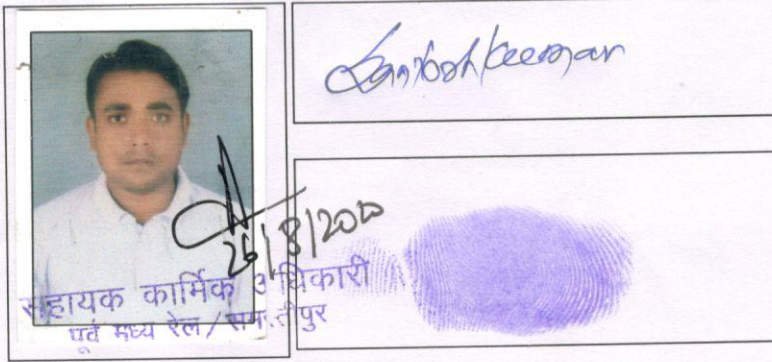 Santosh Kumar
26/8/2020
सहायक कार्मिक अधिकारी
पूर्व मध्य रेल / समस्तीपुर